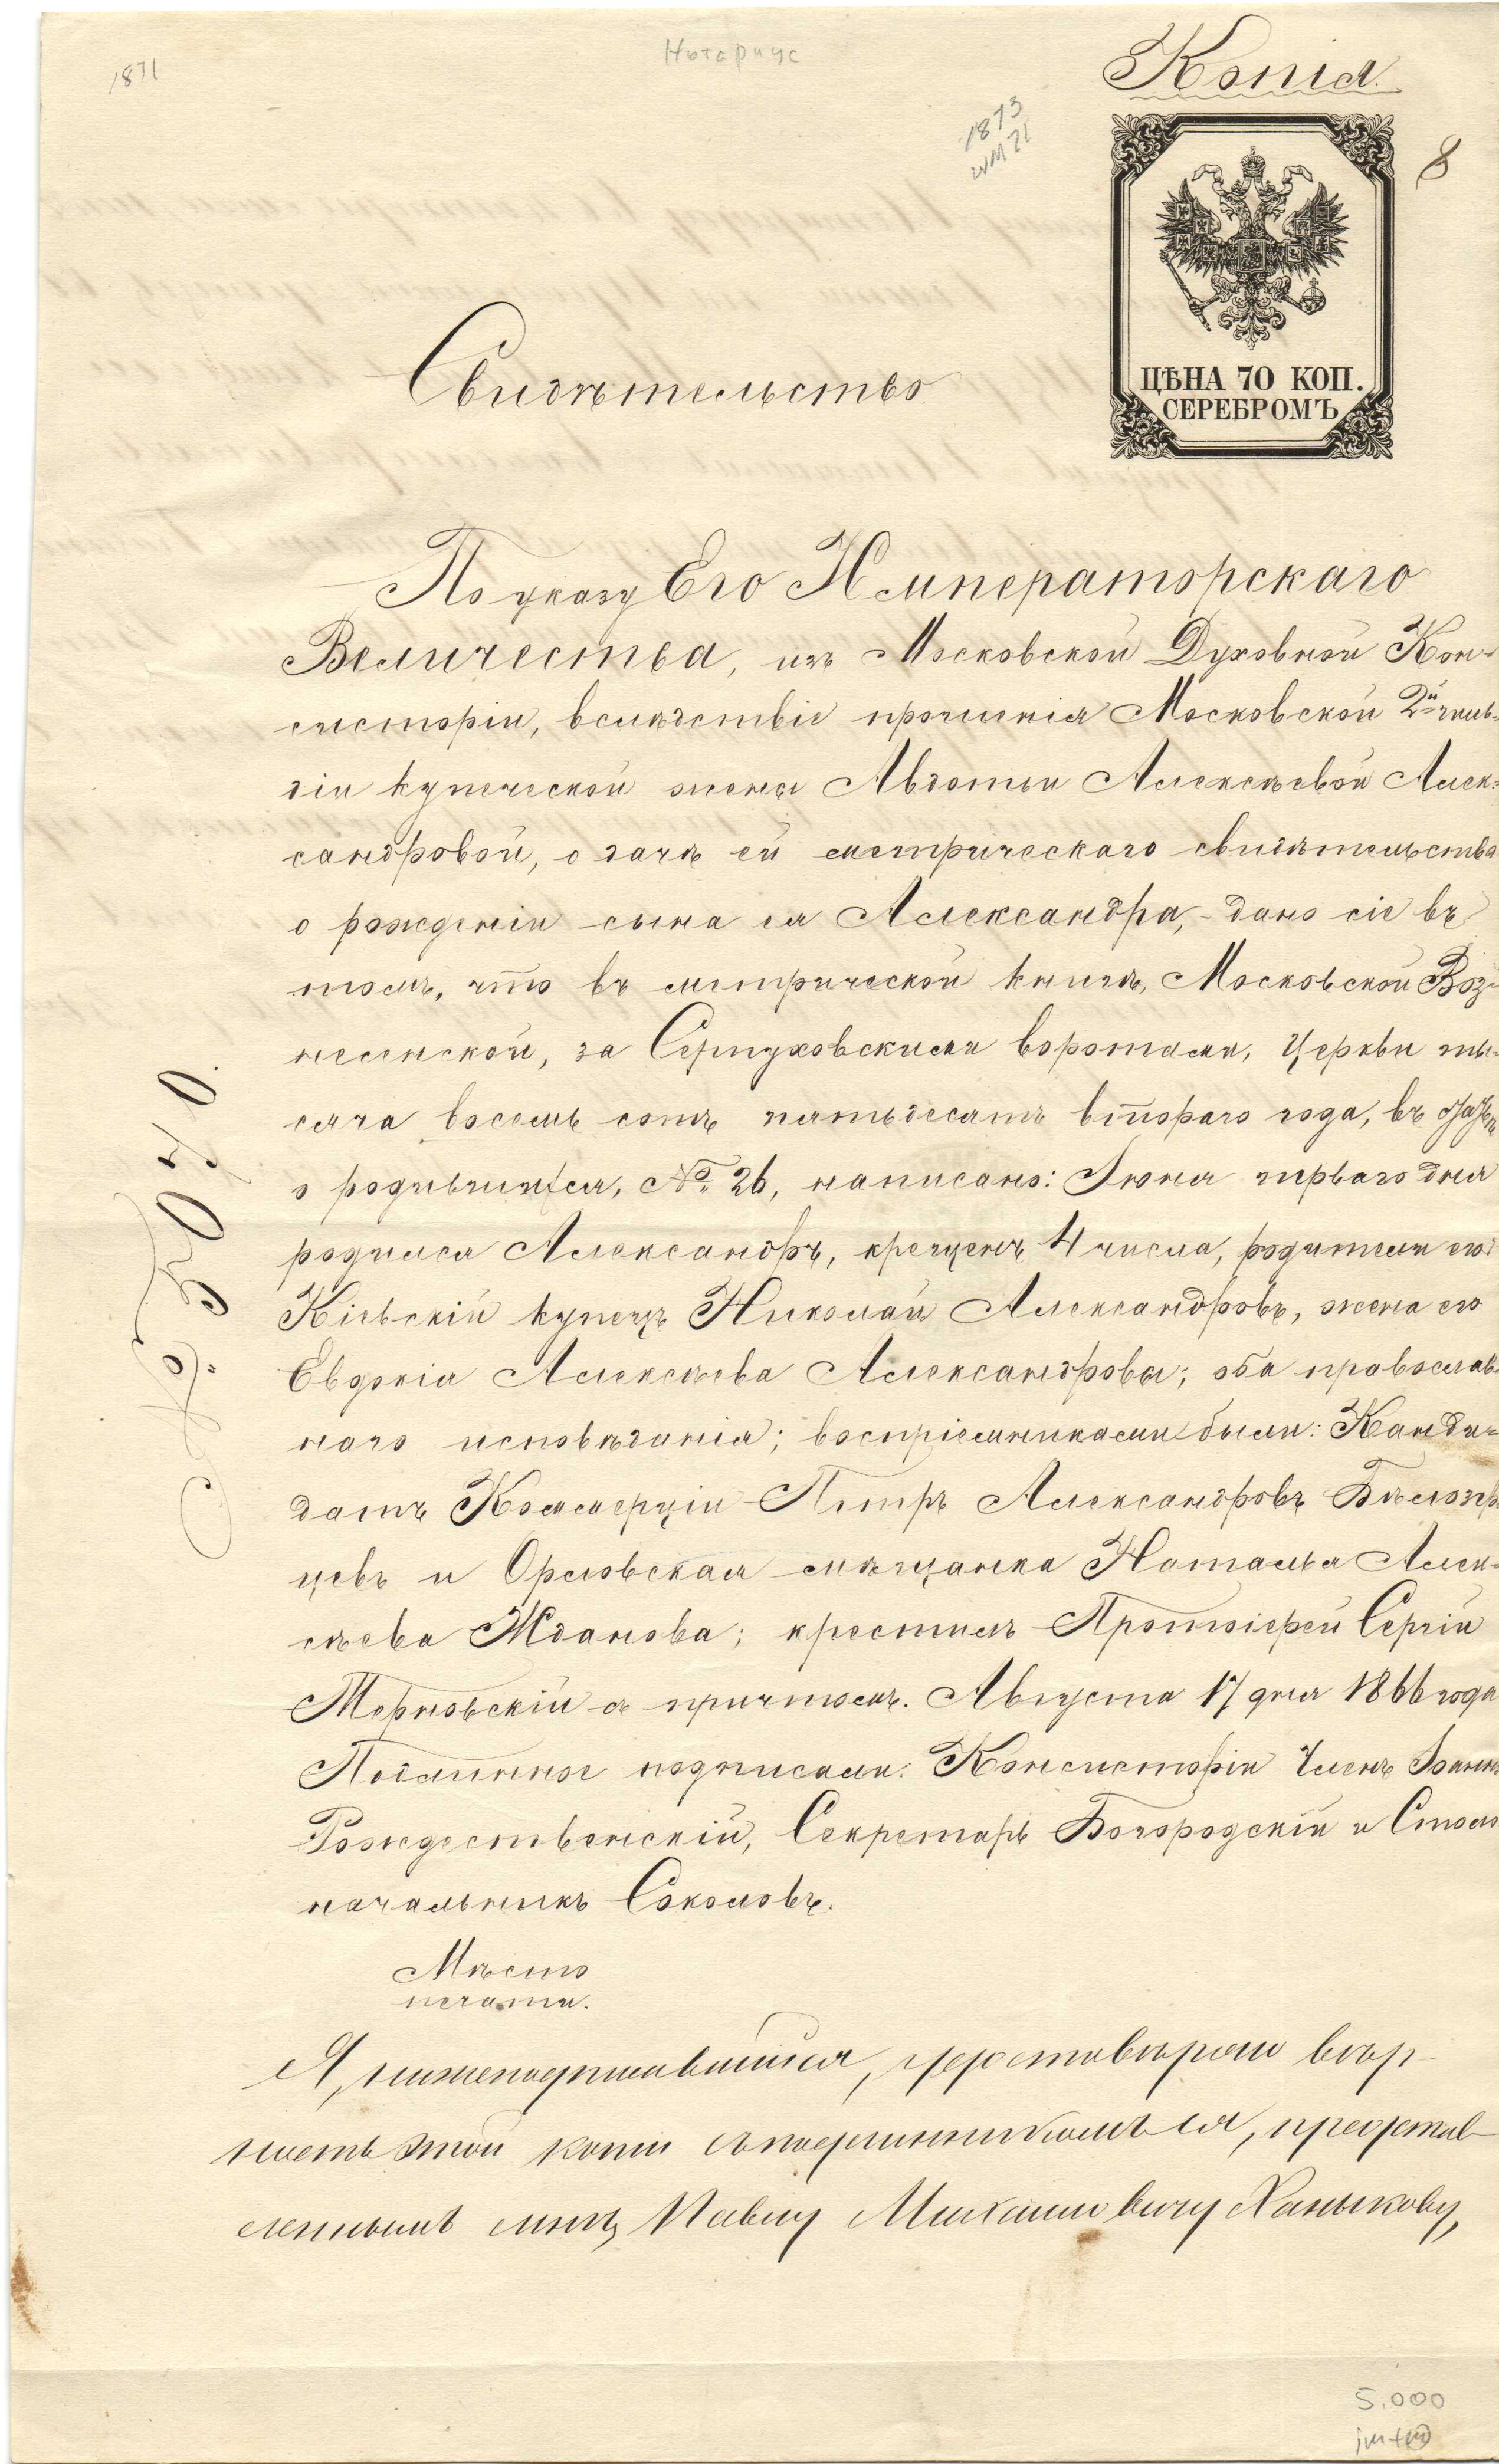 1871
Нотариус
Копія
1873
WM 71
8
ЦѢНА 70 КОП.
СЕРЕБРОМЪ
Свидѣтельство
По указу Его Императорскаго
Величества, изъ Московской Духовной Кон-
систоріи, вслѣдствіе прошенія Московской 2й гиль-
діи купеческой жены Авдотьи Алексѣевой Алек-
сандровой, о дачѣ ей метрическаго свидѣтельства
о рожденіи сына ея Александра, - дано сіе въ
томъ, что въ метрической книгѣ, Московской Воз-
несенской, за Серпуховскими воротами, Церкви ты-
сяча восемь сотъ пятьдесятъ втораго года, въ
о родившихся, № 26, написано: Іюня перваго дня
родился Александръ, крещенъ 4 числа, родители его:
Кіевскій купецъ Николай Александровъ, жена его
Евдокія Алексѣева Александровы; оба православ-
наго исповѣданія; воспріемниками были: Канди-
датъ Коммерціи Петръ Александровъ Бѣлозер-
цевъ и Орловская мѣщанка Наталья Алек-
сѣева Жданова; крестилъ Протоіерей Сергій
Терновскій съ причтомъ. Августа 17 дня 1866 года
Подлинное подписали: Консисторіи Членъ Іоаннъ
Рождественскій, Секретарь Богородскій и Столо
начальникъ Соколовъ.
Мѣсто
печати.
№ 5070.
Я, нижеподписавшійся, удостовѣряю вѣр-
ность этой копіи съ подлинникомъ ея, представ-
леннымъ мнѣ, Павлу Михайловичу Ханыкову,
5.000